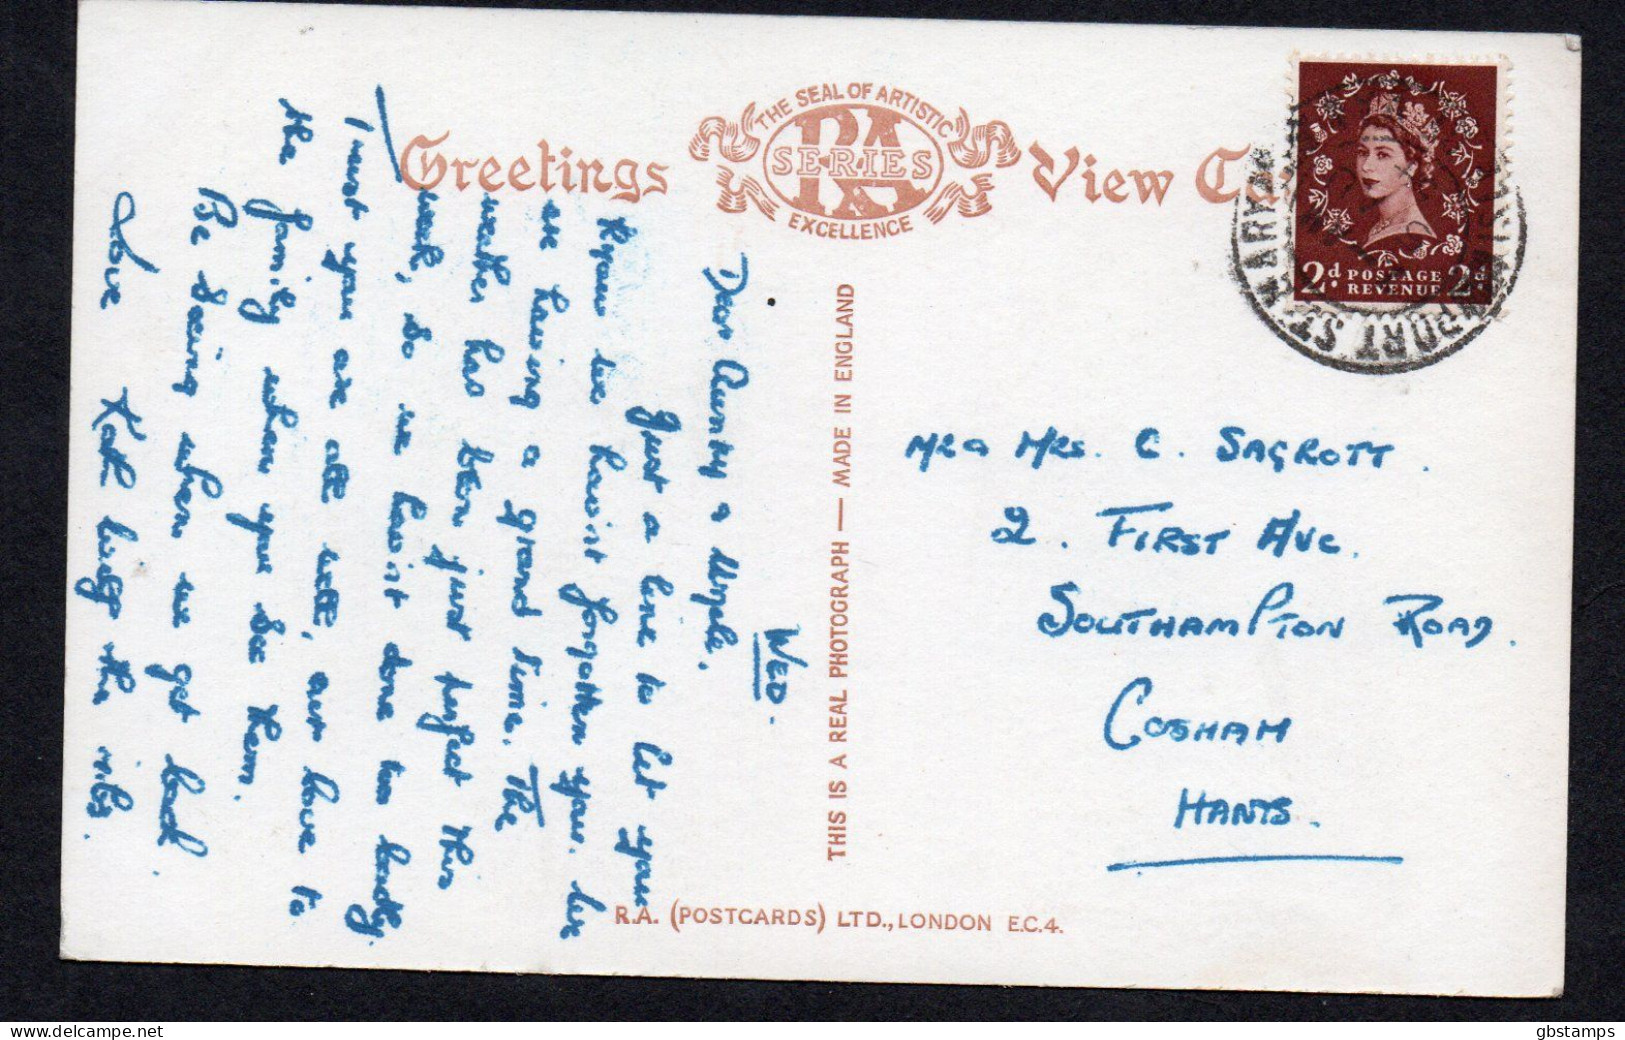 Greetings
THE SEAL OF ARTISTIC
RA
SERIES
EXCELLENCE
View Ca
2d. POSTAGE 2d.
REVENUE
PORT ST. MARY
WED.
Dear Aunty & Unkle.
Just a line to let you
know we hav'nt forgotten you. We
are having a grand time. The
weather has been just perfect this
week, so we hav'nt done too badly.
I trust you are all well, our love to
the family when you see them.
Be seeing you when we get back
Love Kath the
THIS IS A REAL PHOTOGRAPH — MADE IN ENGLAND
MR & MRS. C. SAGROTT.
2. FIRST AVE.
SOUTHAMPTON ROAD.
COSHAM
HANTS.
R.A. (POSTCARDS) LTD., LONDON E.C.4.
gbstamps